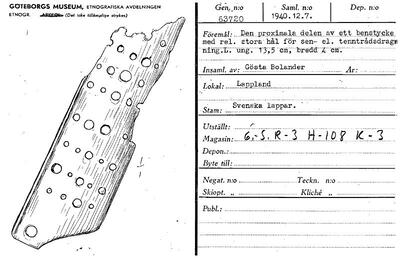 GÖTEBORGS MUSEUM, ETNOGRAFISKA AVDELNINGEN
ETNOGR. ARKEOL. (Det icke tillämpliga strykes)
1/1
Gen. n:o Saml. n:o Dep. n:o
63720 1940.12.7.
Föremål: Den proximala delen av ett benstycke
med rel. stora hål för sen- el. tenntrådsdrag
ning.L. ung. 13,5 cm, bredd 4 cm.
Insaml. av: Gösta Bolander År:
Lokal: Lappland
Stam: Svenska lappar.
Utställt:
Magasin: 6.-S. R-3 H-108 K-3
Depon.:
Byte till:
Negat. n:o Teckn. n:o
Skiopt. „ Kliché „
Publ.: